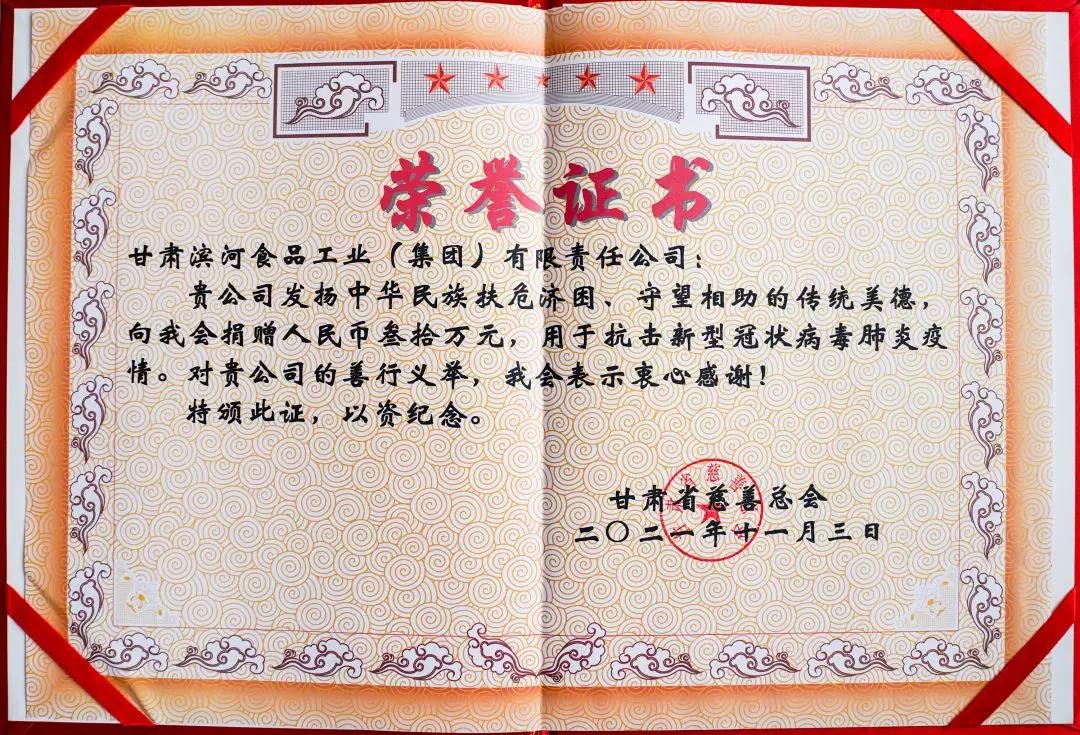 荣誉证书
甘肃滨河食品工业（集团）有限责任公司：
贵公司发扬中华民族扶危济困、守望相助的传统美德，
向我会捐赠人民币叁拾万元，用于抗击新型冠状病毒肺炎疫
情。对贵公司的善行义举，我会表示衷心感谢！
特颁此证，以资纪念。
甘肃省慈善总会
二〇二一年十一月三日